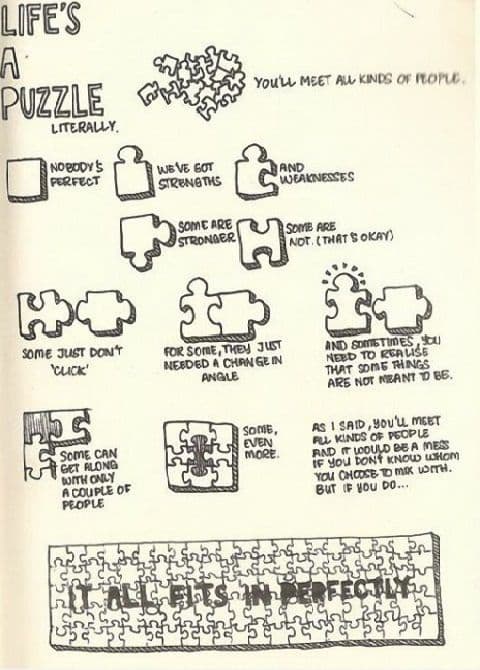 LIFE'S
A
PUZZLE
LITERALLY.
YOU'LL MEET ALL KINDS OF PEOPLE.
NOBODY'S
PERFECT
WE'VE GOT
STRENGTHS
AND
WEAKNESSES
SOME ARE
STRONGER
SOME ARE
NOT. (THAT'S OKAY)
SOME JUST DON'T
'CLICK'
FOR SOME, THEY JUST
NEEDED A CHANGE IN
ANGLE
AND SOMETIMES, YOU
NEED TO REALISE
THAT SOME THINGS
ARE NOT MEANT TO BE.
SOME CAN
GET ALONG
WITH ONLY
A COUPLE OF
PEOPLE
SOME,
EVEN
MORE.
AS I SAID, YOU'LL MEET
ALL KINDS OF PEOPLE
AND IT WOULD BE A MESS
IF YOU DON'T KNOW WHOM
YOU CHOOSE TO MIX WITH.
BUT IF YOU DO...
IT ALL FITS IN PERFECTLY